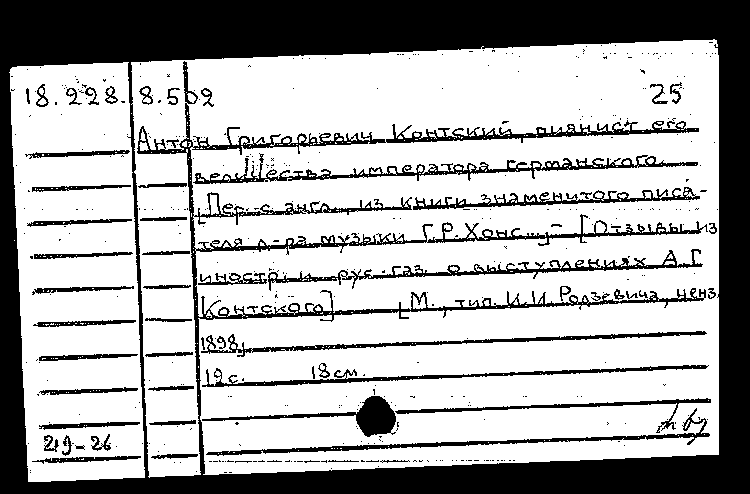 18.228.8.502 25
Антон Григорьевич Контский, пианист его
величества императора германского.
[Пер. с англ., из книги знаменитого писа-
теля д-ра музыки Г.Р. Хонс...] - [Отзывы из
иностр. и рус. газ. о выступлениях А.Г.
Контского] [М., тип. И.И. Родзевича, ценз.
1898]
12 с. 18 см.
219-26